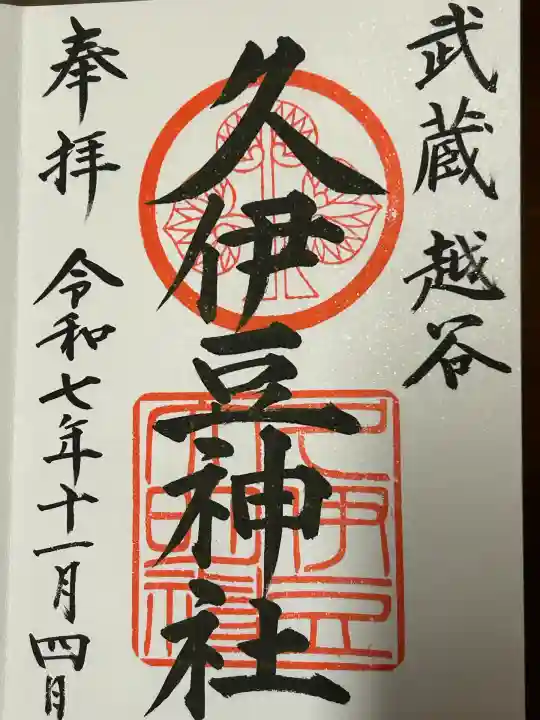 武蔵越谷
久伊豆神社
奉拝 令和七年十一月四日
久伊豆神社